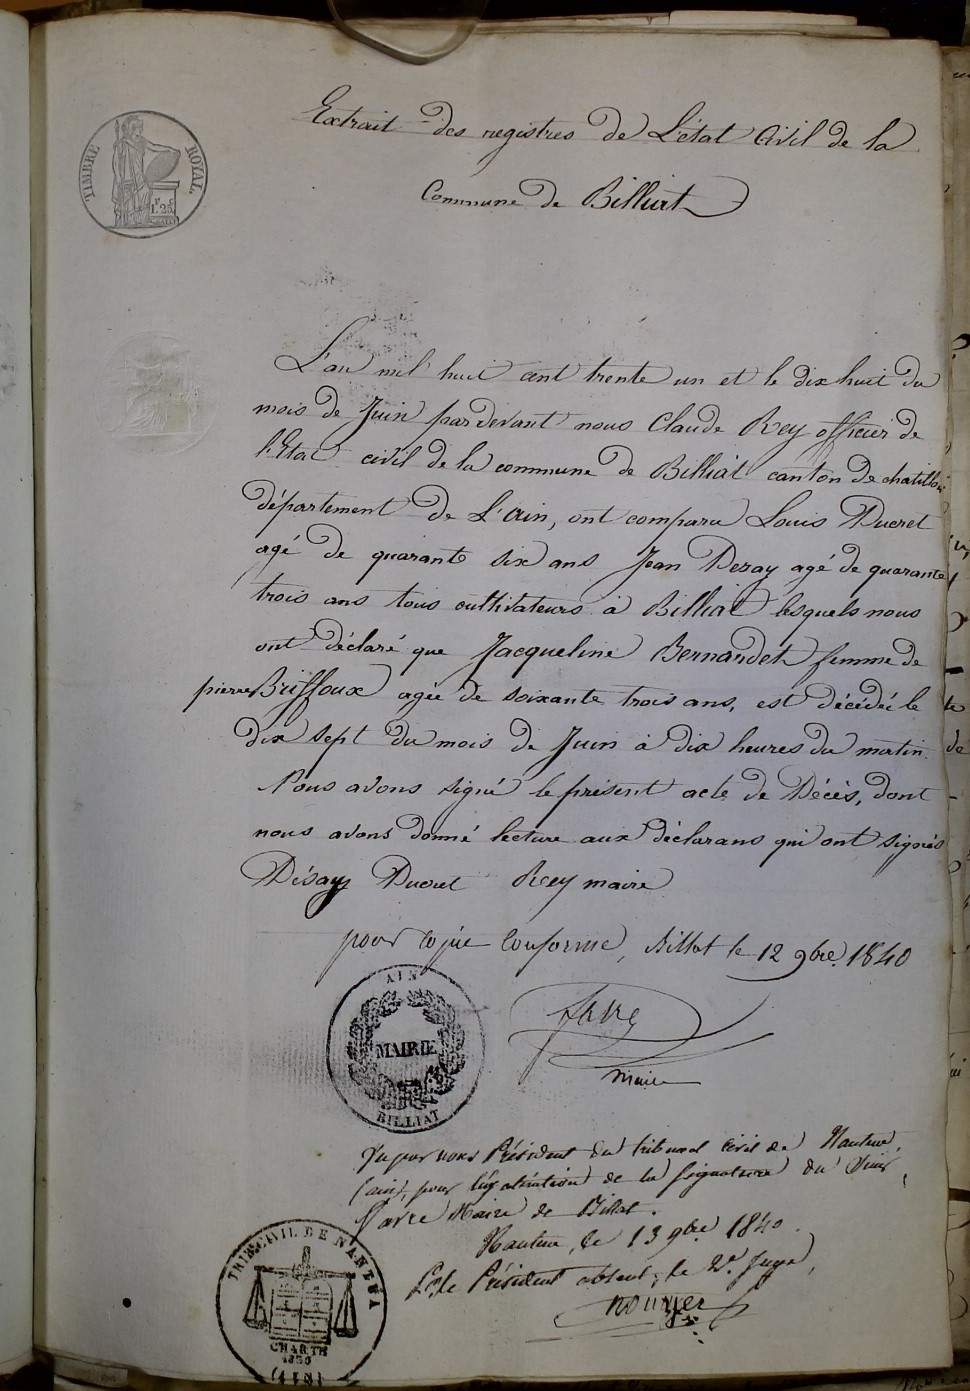 Extrait des registres de L'état Civil de la
Commune de Billiat
TIMBRE ROYAL
1.25
L'an mil huit cent trente un et le dix huit du
mois de Juin pardevant nous Claude Rey officier de
l'Etat civil de la commune de Billiat canton de chatillon
département de L'ain, ont comparu Louis Ducret
agé de quarante six ans Jean Dezay agé de quarante
trois ans tous cultivateurs à Billiat lesquels nous
ont déclaré que Jacqueline Bernandet femme de
pierre Briffoux agée de soixante trois ans, est décédée le
dix sept du mois de Juin à dix heures du matin.
Nous avons signé le présent acte de Décès, dont
nous avons donné lecture aux déclarans qui ont signés
Désay Ducret Rey maire
pour copie conforme, Billat le 12 9bre 1840
AIN
MAIRIE
BILLIAT
favre
maire
Vu par nous Président du tribunal civil de Nantua,
(ain), pour légalisation de la signature du Sieur
Favre Maire de Billat.
Nantua, le 13 9bre 1840.
Pr le Président absent, le Juge,
TRIB. CIVIL DE NANTUA
CHARTE
1830